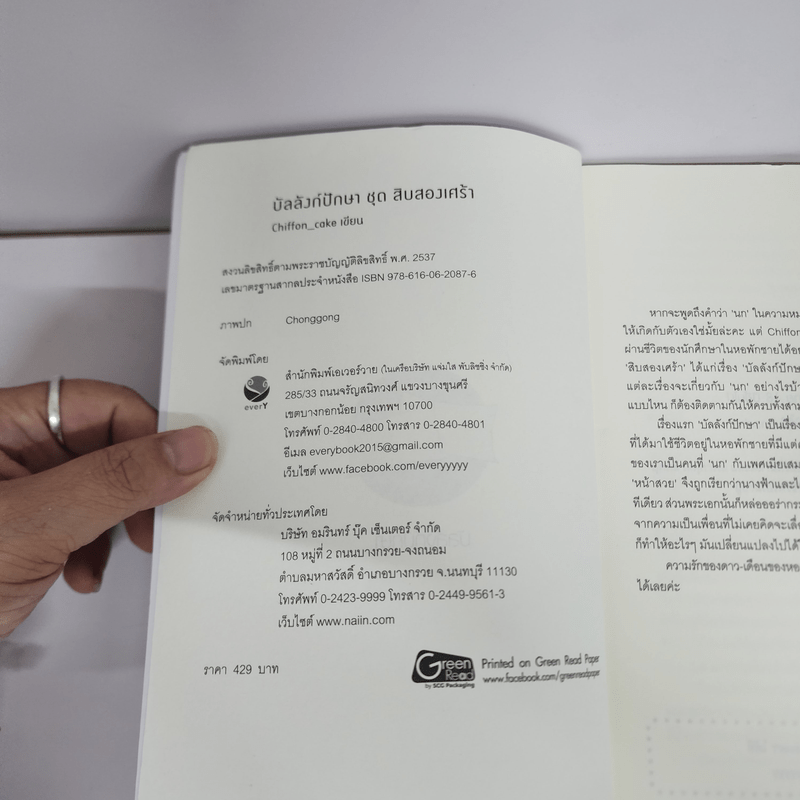 บัลลังก์ปักษา ชุด สิบสองเศร้า
Chiffon_cake เขียน
สงวนลิขสิทธิ์ตามพระราชบัญญัติลิขสิทธิ์ พ.ศ. 2537
เลขมาตรฐานสากลประจำหนังสือ ISBN 978-616-06-2087-6
ภาพปก Chonggong
จัดพิมพ์โดย
everY
สำนักพิมพ์เอเวอร์วาย (ในเครือบริษัท แจ่มใส พับลิชชิ่ง จำกัด)
285/33 ถนนจรัญสนิทวงศ์ แขวงบางขุนศรี
เขตบางกอกน้อย กรุงเทพฯ 10700
โทรศัพท์ 0-2840-4800 โทรสาร 0-2840-4801
อีเมล everybook2015@gmail.com
เว็บไซต์ www.facebook.com/everyyyyy
จัดจำหน่ายทั่วประเทศโดย
บริษัท อมรินทร์ บุ๊ค เซ็นเตอร์ จำกัด
108 หมู่ที่ 2 ถนนบางกรวย-จงถนอม
ตำบลมหาสวัสดิ์ อำเภอบางกรวย จ.นนทบุรี 11130
โทรศัพท์ 0-2423-9999 โทรสาร 0-2449-9561-3
เว็บไซต์ www.naiin.com
ราคา 429 บาท
Green Read
by SCG Packaging
Printed on Green Read Paper
www.facebook.com/greenreadpaper
หากจะพูดถึงคำว่า 'นก' ในความหม
ให้เกิดกับตัวเองใช่มั้ยล่ะคะ แต่ Chiffon
ผ่านชีวิตของนักศึกษาในหอพักชายได้อย
'สิบสองเศร้า' ได้แก่เรื่อง 'บัลลังก์ปักษ
แต่ละเรื่องจะเกี่ยวกับ 'นก' อย่างไรบ้า
แบบไหน ก็ต้องติดตามกันให้ครบทั้งสาม
เรื่องแรก 'บัลลังก์ปักษา' เป็นเรื่อง
ที่ได้มาใช้ชีวิตอยู่ในหอพักชายที่มีแต่
ของเราเป็นคนที่ 'นก' กับเพศเมียเสม
'หน้าสวย' จึงถูกเรียกว่านางฟ้าและไ
ทีเดียว ส่วนพระเอกนั้นก็หล่อออร่ากระ
จากความเป็นเพื่อนที่ไม่เคยคิดจะเลื่
ก็ทำให้อะไรๆ มันเปลี่ยนแปลงไปได้
ความรักของดาว-เดือนของหอ
ได้เลยค่ะ